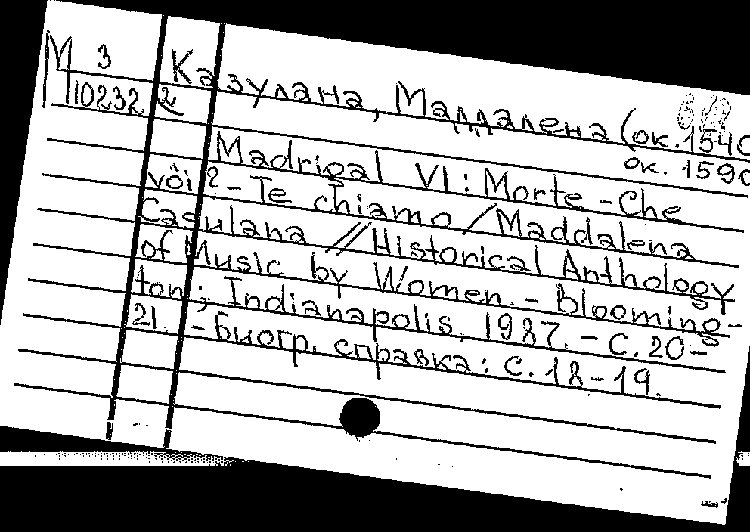 М 3
10232 2
Казулана, Маддалена (ок. 1540
ок. 1590
Madrigal VI: Morte - Che
vôi - Te chiamo / Maddalena
Casulana // Historical Anthology
of Music by Women. - Blooming-
ton; Indianapolis, 1987. - С. 20-
21. - Биогр. справка: с. 18-19.